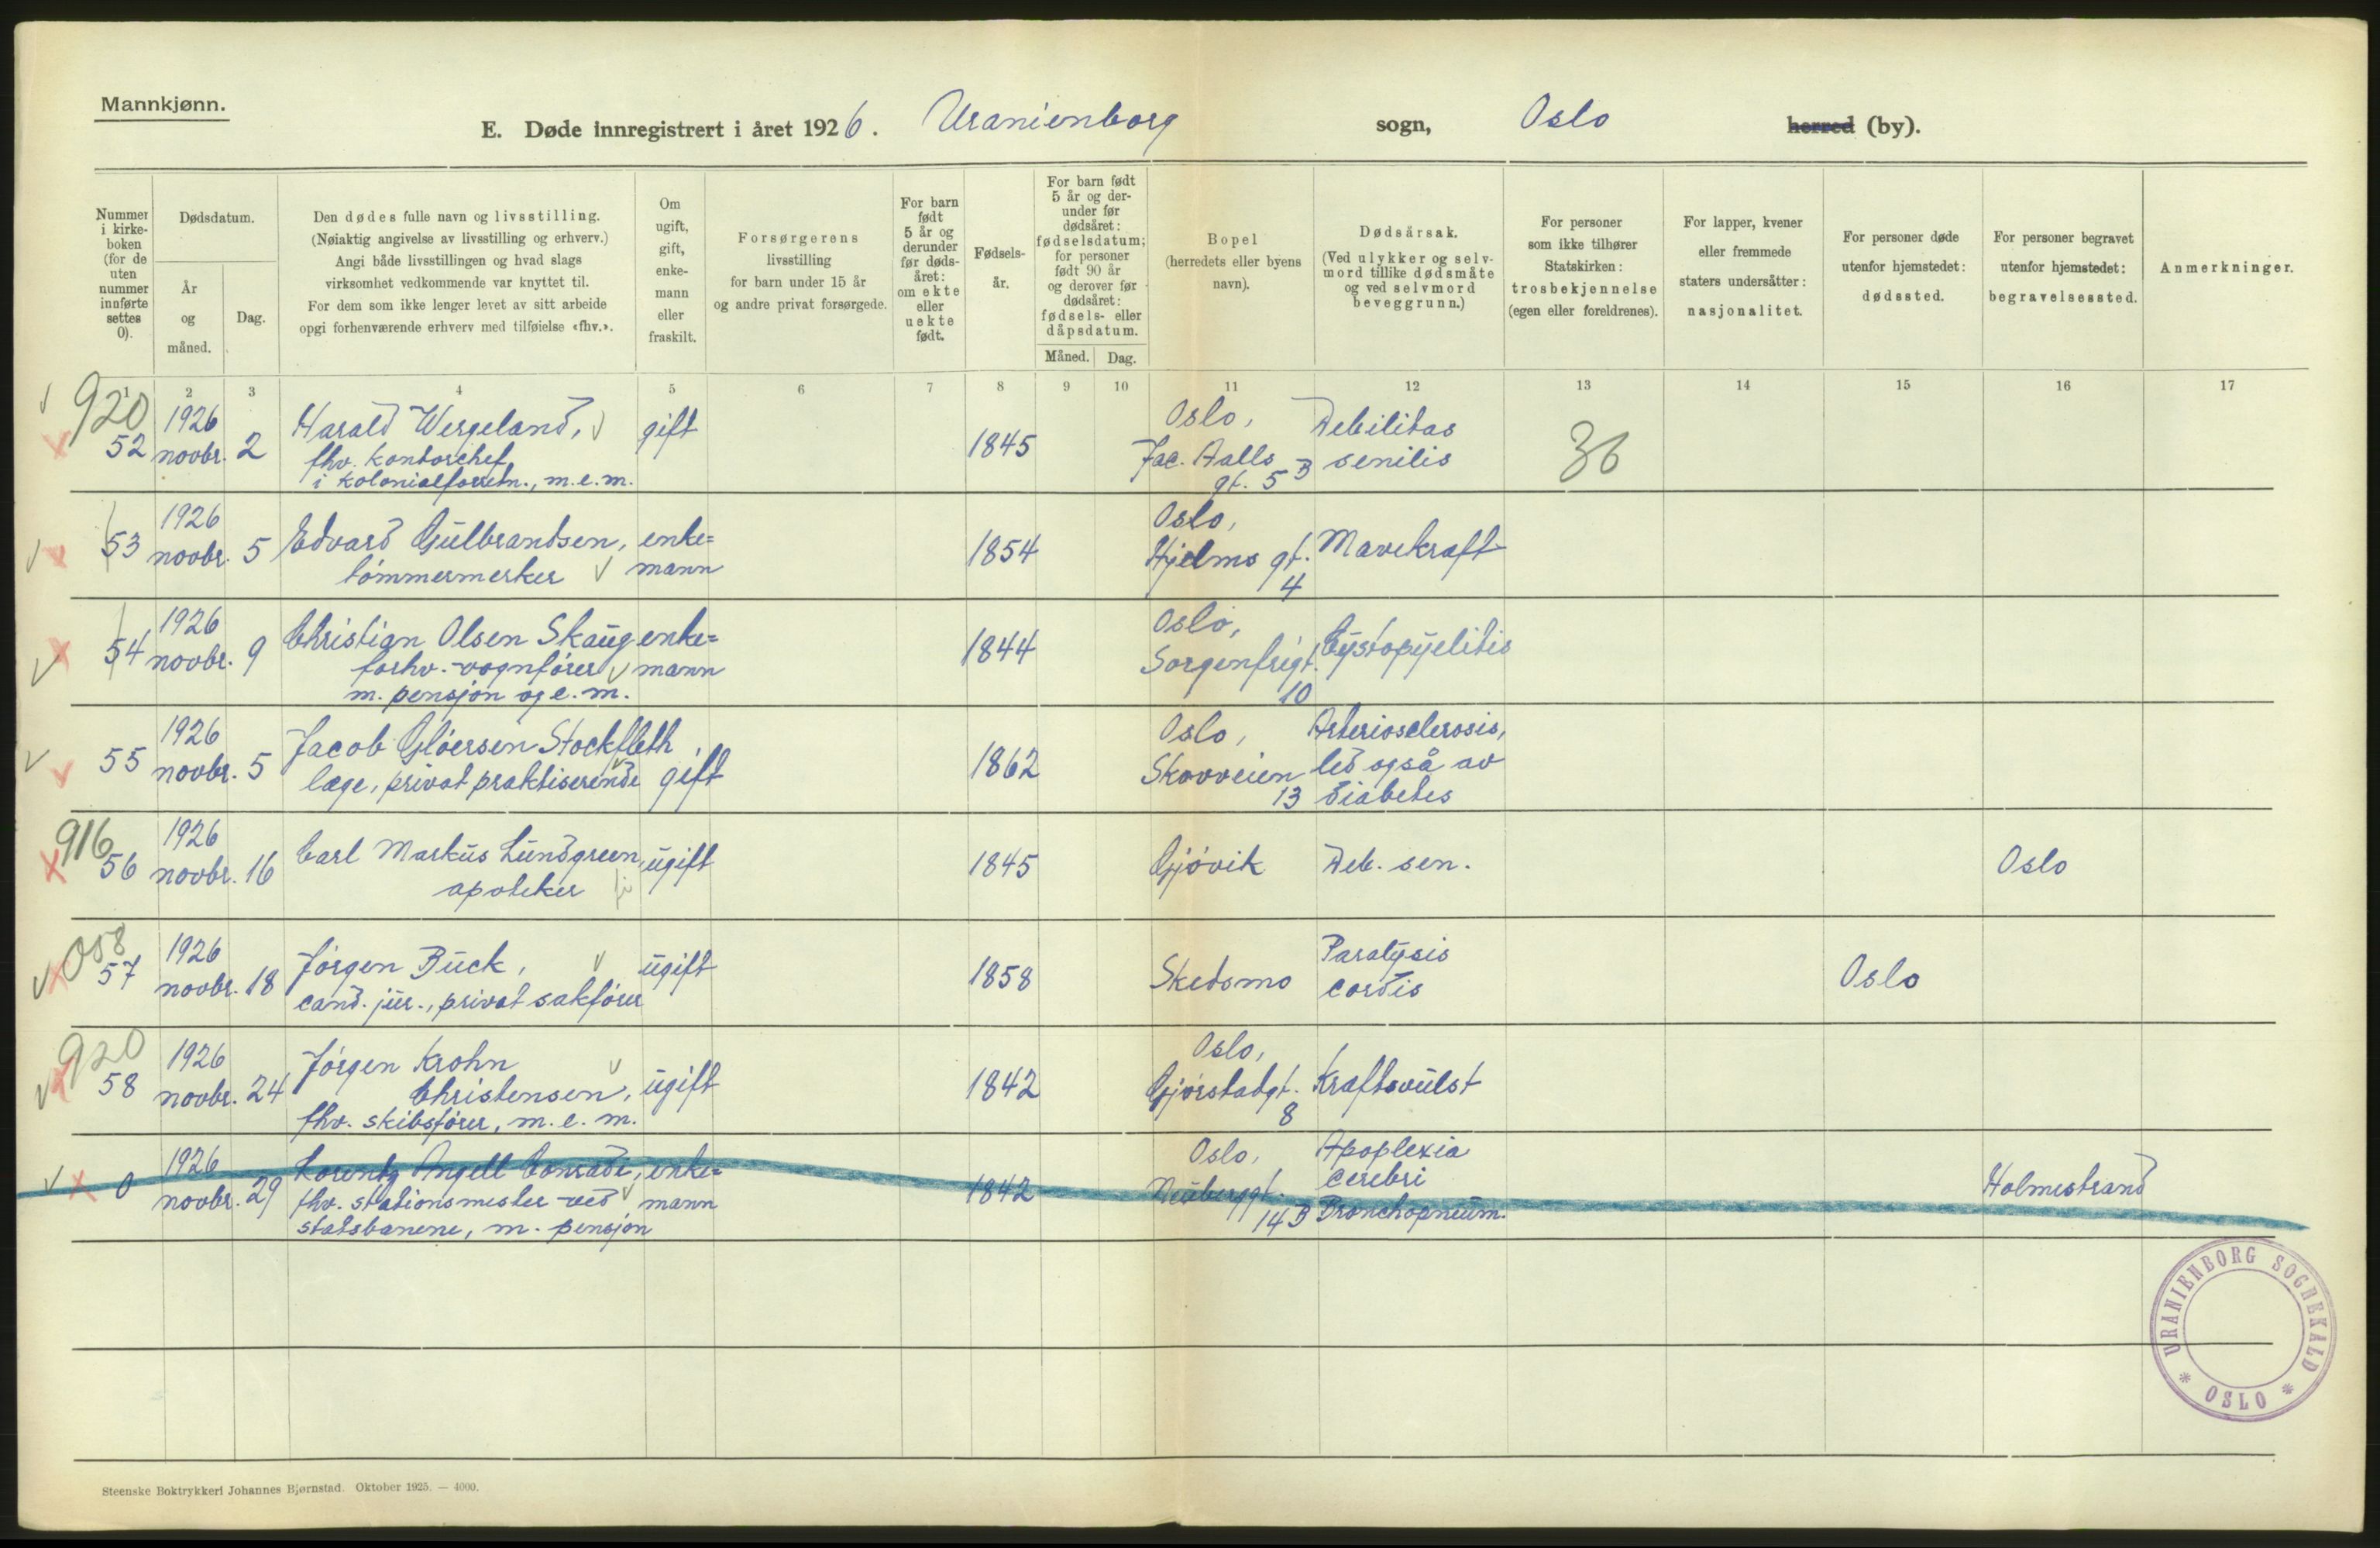 Mannkjønn.
E. Døde innregistrert i året 1926. Uranienborg sogn, Oslo herred (by).
Nummer i kirke- boken (for de uten nummer innførte settes 0).
Dødsdatum.
År og måned.
Dag.
Den dødes fulle navn og livsstilling.
(Nøiaktig angivelse av livsstilling og erhverv.)
Angi både livsstillingen og hvad slags
virksomhet vedkommende var knyttet til.
For dem som ikke lenger levet av sitt arbeide
opgi forhenværende erhverv med tilføielse «fhv.».
Om ugift, gift, enke- mann eller fraskilt.
Forsørgerens
livsstilling
for barn under 15 år
og andre privat forsørgede.
For barn født 5 år og derunder før døds- året: om ekte eller uekte født.
Fødsels- år.
For barn født 5 år og der- under før dødsåret: fødselsdatum; for personer født 90 år og derover før dødsåret: fødsels- eller dåpsdatum.
Måned.
Dag.
Bopel
(herredets eller byens
navn).
Dødsårsak.
(Ved ulykker og selv-
mord tillike dødsmåte
og ved selvmord
beveggrunn.)
For personer
som ikke tilhører
Statskirken:
trosbekjennelse
(egen eller foreldrenes).
For lapper, kvener
eller fremmede
staters undersåtter:
nasjonalitet.
For personer døde
utenfor hjemstedet:
dødssted.
For personer begravet
utenfor hjemstedet:
begravelsessted.
Anmerkninger.
1 2 3 4 5 6 7 8 9 10 11 12 13 14 15 16 17
920
1926 Harald Wergeland, gift 1845 Oslo, Debilitas 36
52 novbr. 2 fhv. kontorchef Jac. Aalls senilis
i kolonialforretn., m.e.m. gt. 5 B
1926 Oslo,
53 novbr. 5 Edvard Gulbrandsen, enke= 1854 Hjelms gt. Mavekræft
tömmermerker mann 4
1926 Christian Olsen Skaug enke= Oslo,
54 novbr. 9 forhv. vognfører mann 1844 Sorgenfrigt. Cystopyelitis
m. pensjon og e. m. 10
1926 Jacob Gløersen Stockfleth, Oslo, Arteriosclerosis,
55 novbr. 5 læge, privat praktiserende gift 1862 Skovveien led også av
13 diabetes
916
1926
56 novbr. 16 Carl Markus Lundgreen, ugift 1845 Gjøvik Deb. sen. Oslo
apoteker
058
1926 Jørgen Buck, ugift 1858 Skedsmo Paralysis Oslo
57 novbr. 18 cand. jur., privat sakfører cordis
920
1926 Jørgen Krohn Oslo,
58 novbr. 24 Christensen, ugift 1842 Gjørstadgt. Kræftsvulst
fhv. skibsfører, m. e. m. 8
1926 Lorentz Angell Conradi, enke= Oslo, Apoplexia
0 novbr. 29 fhv. stationsmester ved mann 1842 Neuberggt. cerebri Holmestrand
statsbanene, m. pensjon 14 B Bronchopneum.
URANIENBORG SOGNEKALD * OSLO *
Steenske Boktrykkeri Johannes Bjørnstad. Oktober 1925. — 4000.